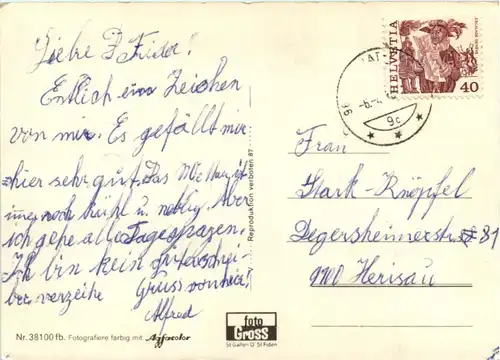 Liebe P Frieda!
Entlich ein Zeichen
von mir. Es gefällt mir
hier sehr gut. Das Wetter ist
immer noch kühl u neblig. Aber
ich gehe alle Tage spazieren.
Ich bin kein
ber verzeihe Gruss von hier!
Alfred
Nr. 38100 fb. Fotografiere farbig mit Agfacolor
Reproduktion verboten 67
foto
Gross
St Gallen O St Fiden
HELVETIA
40
-6.-
9c
Frau
Stark-Knöpfel
Degersheimerstr 81
9100 Herisau